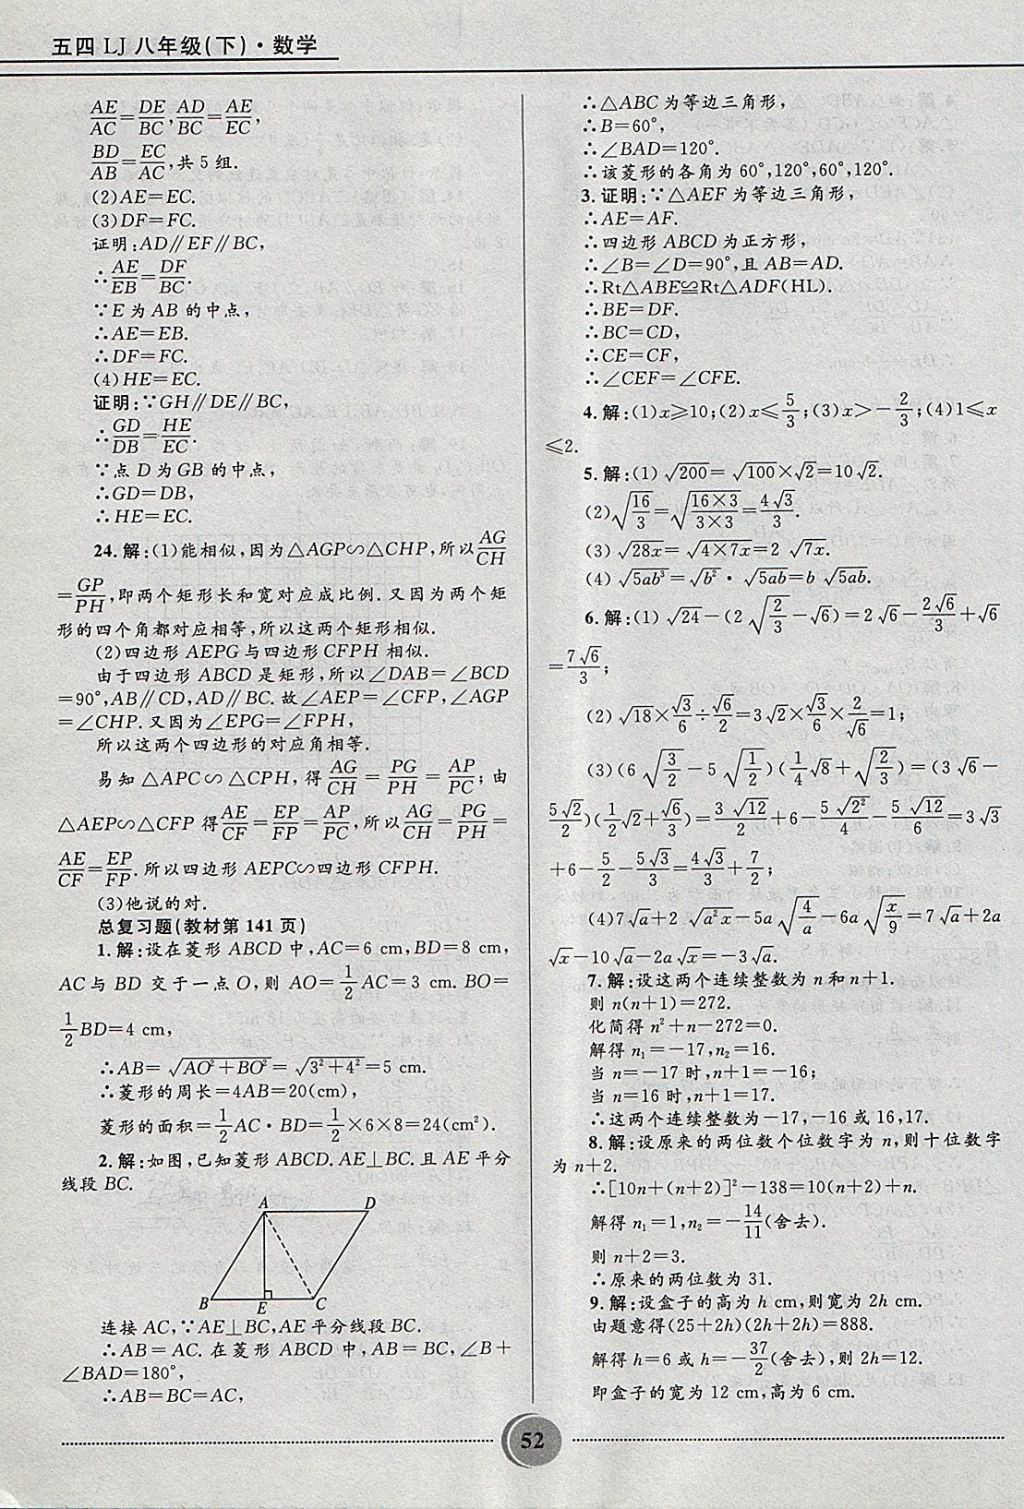 五四 LJ 八年级(下)·数学
AE/AC=DE/BC,AD/BC=AE/EC,
BD/AB=EC/AC,共 5 组.
(2)AE=EC.
(3)DF=FC.
证明:AD∥EF∥BC,
∴AE/EB=DF/BC.
∵E 为 AB 的中点,
∴AE=EB.
∴DF=FC.
(4)HE=EC.
证明:∵GH∥DE∥BC,
∴GD/DB=HE/EC.
∵点 D 为 GB 的中点,
∴GD=DB,
∴HE=EC.
24.解:(1)能相似,因为△AGP∽△CHP,所以AG/CH
=GP/PH,即两个矩形长和宽对应成比例.又因为两个矩
形的四个角都对应相等,所以这两个矩形相似.
(2)四边形 AEPG 与四边形 CFPH 相似.
由于四边形 ABCD 是矩形,所以∠DAB=∠BCD
=90°,AB∥CD,AD∥BC.故∠AEP=∠CFP,∠AGP
=∠CHP.又因为∠EPG=∠FPH,
所以这两个四边形的对应角相等.
易知△APC∽△CPH,得AG/CH=PG/PH=AP/PC;由
△AEP∽△CFP 得AE/CF=EP/FP=AP/PC,所以AG/CH=PG/PH=
AE/CF=EP/FP.所以四边形 AEPC∽四边形 CFPH.
(3)他说的对.
总复习题(教材第 141 页)
1.解:设在菱形 ABCD 中,AC=6 cm,BD=8 cm,
AC 与 BD 交于一点 O,则 AO=1/2AC=3 cm.BO=
1/2BD=4 cm,
∴AB=√(AO²+BO²)=√(3²+4²)=5 cm.
∴菱形的周长=4AB=20(cm),
菱形的面积=1/2AC·BD=1/2×6×8=24(cm²).
2.解:如图,已知菱形 ABCD.AE⊥BC.且 AE 平分
线段 BC.
A D
B E C
连接 AC,∵AE⊥BC,AE 平分线段 BC.
∴AB=AC.在菱形 ABCD 中,AB=BC,∠B+
∠BAD=180°,
∴AB=BC=AC,
∴△ABC 为等边三角形,
∴B=60°,
∴∠BAD=120°.
∴该菱形的各角为 60°,120°,60°,120°.
3.证明:∵△AEF 为等边三角形,
∴AE=AF.
∴四边形 ABCD 为正方形,
∴∠B=∠D=90°,且 AB=AD.
∴Rt△ABE≌Rt△ADF(HL).
∴BE=DF.
∴BC=CD,
∴CE=CF,
∴∠CEF=∠CFE.
4.解:(1)x⩾10;(2)x⩽5/3;(3)x>-2/3;(4)1⩽x
⩽2.
5.解:(1)√200=√100×√2=10√2.
(2)√(16/3)=√((16×3)/(3×3))=4√3/3.
(3)√(28x)=√(4×7x)=2√(7x).
(4)√(5ab³)=√(b²)·√(5ab)=b√(5ab).
6.解:(1)√24-(2√(2/3)-√6)=2√6-2√6/3+√6
=7√6/3;
(2)√18×√3/6÷√6/2=3√2×√3/6×2/√6=1;
(3)(6√(3/2)-5√(1/2))(1/4√8+√(2/3))=(3√6-
5√2/2)(1/2√2+√6/3)=3√12/2+6-5√2²/4-5√12/6=3√3
+6-5/2-5√3/3=4√3/3+7/2;
(4)7√a+2√(a²x)-5a√(4/a)-6a√(x/9)=7√a+2a
√x-10√a-2a√x=-3√a.
7.解:设这两个连续整数为 n 和 n+1.
则 n(n+1)=272.
化简得 n²+n-272=0.
解得 n₁=-17,n₂=16.
当 n=-17 时,n+1=-16;
当 n=16 时,n+1=17.
∴这两个连续整数为-17,-16 或 16,17.
8.解:设原来的两位数个位数字为 n,则十位数字
为 n+2.
∴[10n+(n+2)]²-138=10(n+2)+n.
解得 n₁=1,n₂=-14/11(舍去).
则 n+2=3.
∴原来的两位数为 31.
9.解:设盒子的高为 h cm,则宽为 2h cm.
由题意得(25+2h)(2h+2h)=888.
解得 h=6 或 h=-37/2(舍去),则 2h=12.
即盒子的宽为 12 cm,高为 6 cm.
52